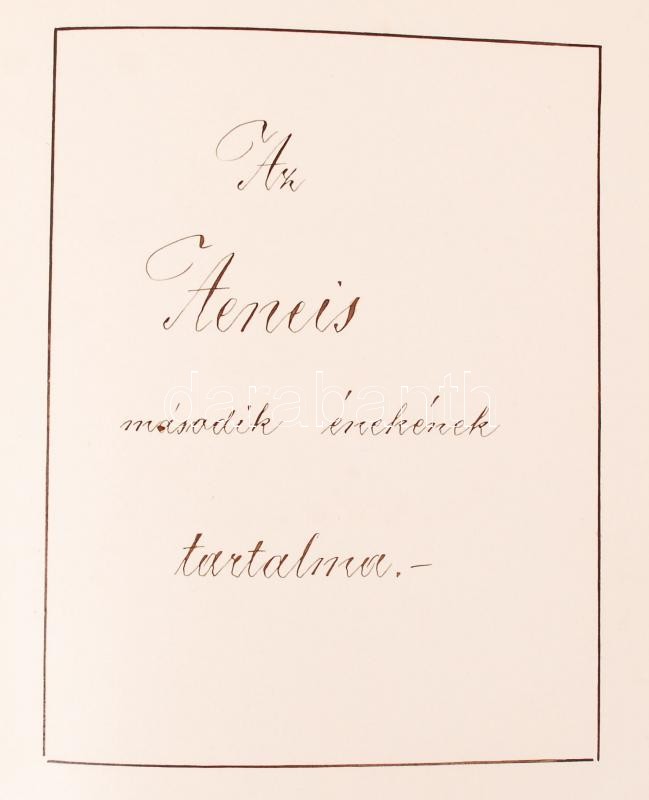 Az
Aeneis
darabanth
második énekének
tartalma.-